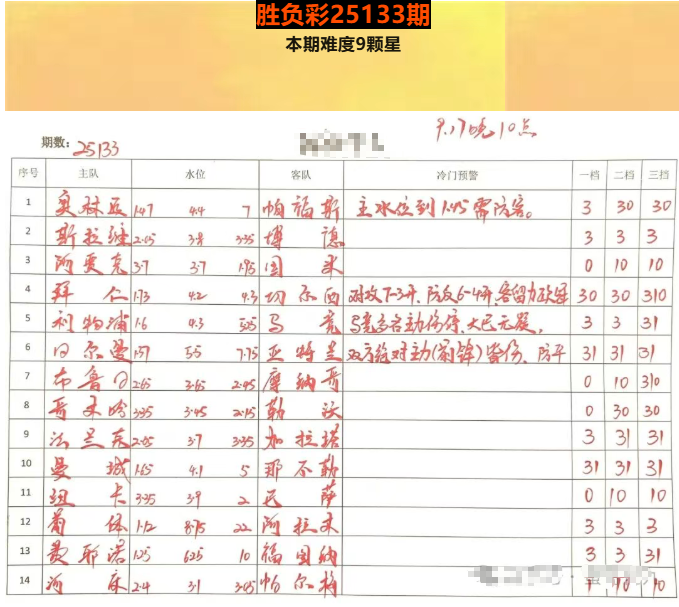 胜负彩25133期
本期难度9颗星
9.17晚10点
期数: 25133
序号 主队 水位 客队 冷门预警 一档 二档 三挡
1 奥林匹 1.47 4.4 7 帕福斯 主水位到1.45需防客。 3 30 30
2 斯拉维 2.05 3.8 3.35 博德 3 3 3
3 阿贾克 3.7 3.7 1.95 国米 0 10 10
4 拜仁 1.73 4.2 4.3 切尔西 对攻7-3开,防反6-4开,客留力 30 30 310
5 利物浦 1.6 4.3 5.05 马竞 马竞多名主动伤停,大巴元气, 3 3 31
6 日尔曼 1.37 5.5 7.75 亚特兰 双方绝对主力(前锋)皆伤、防平 31 31 31
7 布鲁日 2.65 3.65 2.45 摩纳哥 0 10 310
8 哥本哈 3.35 3.45 2.15 勒沃 0 30 30
9 法兰克 2.05 3.7 3.35 加拉塔 3 31 31
10 曼城 1.65 4.1 5 那不勒 31 31 31
11 纽卡 3.35 3.9 2 巴萨 0 10 10
12 葡体 1.12 8.75 22 阿拉木 3 3 3
13 费耶诺 1.25 6.25 10 福图纳 3 3 31
14 河床 2.4 3.1 3.05 帕尔梅 1 10 10